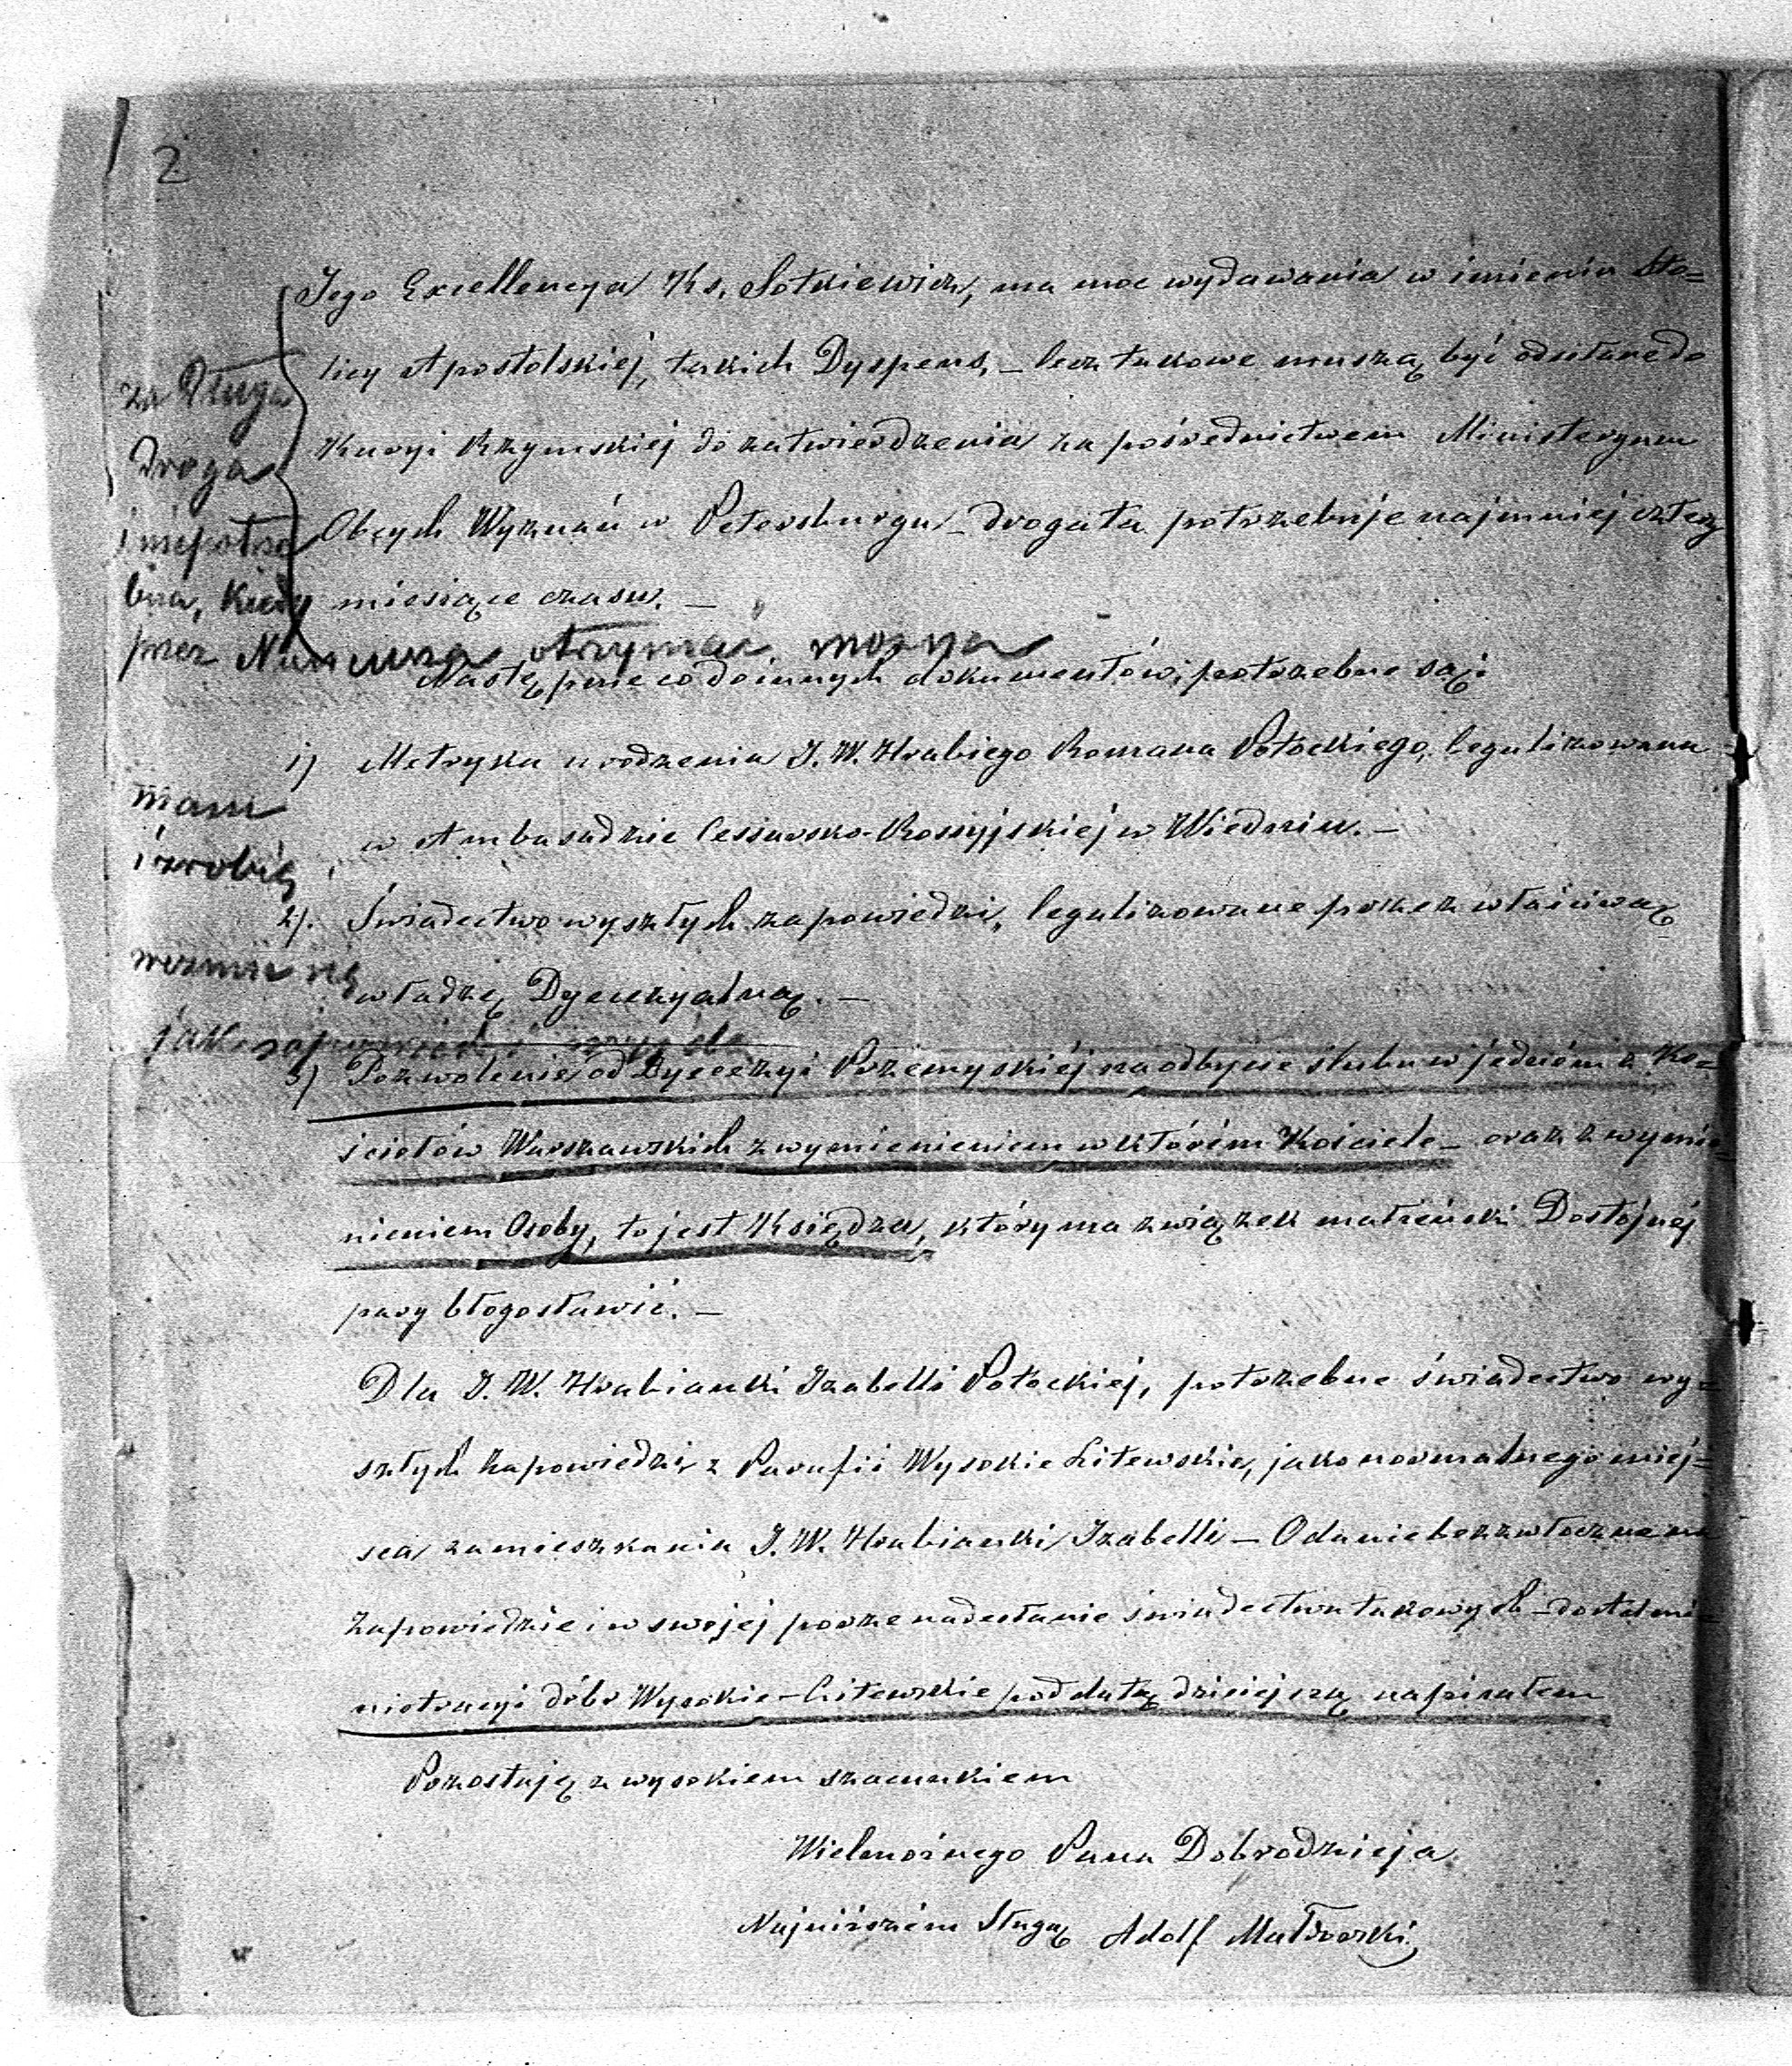 2
Jego Excellencya Ks. Sotkiewicz, ma moc wydawania w imieniu Sto=
licy Apostolskiej, takich Dyspens, – lecz takowe muszą być odsełane do
Kuryi Rzymskiej do zatwierdzenia za pośrednictwem Ministeryum
Obcych Wyznań w Petersburgu – droga ta potrzebuje najmniej cztery
miesiące czasu. –
za długa
droga
i niepotrze
bna, kiedy
przez Nunciusza otrzymać można
Następnie co do innych dokumentów, potrzebne są:
1) Metryka urodzenia J. W. Hrabiego Romana Potockiego, legalizowana
w Ambasadzie Cessarsko-Rossyjskiej w Wiedniu. –
mam
i zrobię
2). Świadectwo wyszłych zapowiedzi, legalizowane przez właściwą
władzę Dyecezyalną. –
wezmie się
jak zapowiedzi wyjdą
3) Pozwolenie od Dyecezyi Przemyskiéj na odbycie ślubu w jedném z Ko=
ściołów Warszawskich z wymienieniem w którém Kościele – oraz z wymie=
nieniem Osoby, to jest Księdza, który ma związek małżeński Dostojnej
pary błogosławić. –
Dla J. W. Hrabianki Izabelli Potockiéj, potrzebne świadectwo wy=
szłych zapowiedzi, z Parafii Wysokie Litewskie, jako normalnego miej=
sca zamieszkania J. W. Hrabianki Izabelli – O danie bezzwłoczne na
zapowiedzie i w swojej porze nadesłanie świadectwa takowych – do Admi=
nistracyi dóbr Wysokie-Litewskie pod datą dzisiejszą napisałem
Pozostaję z wysokiem szacunkiem
Wielmożnego Pana Dobrodzieja
Najniższém Sługą Adolf